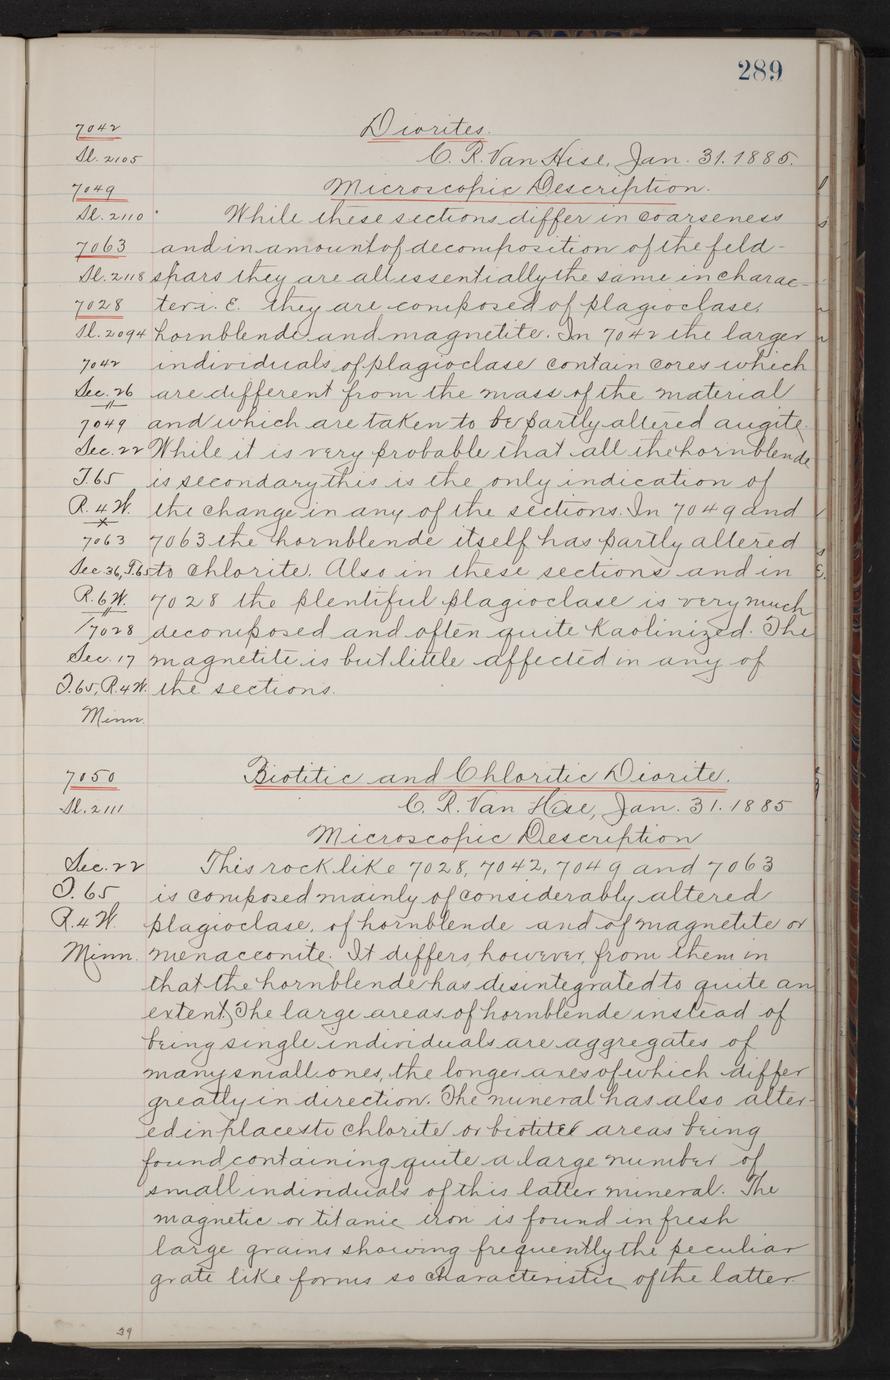 289
7042 Diorites.
Sl. 2105 C. R. Van Hise, Jan. 31. 1885.
7049 Microscopic Description.
Sl. 2110 While these sections differ in coarseness
7063 and in amount of decomposition of the feld-
Sl. 2118 spars they are all essentially the same in charac-
7028 ter i. E. they are composed of plagioclase,
Sl. 2094 hornblende and magnetite. In 7042 the larger
7042 individuals of plagioclase contain cores which
Sec. 26 are different from the mass of the material
7049 and which are taken to be partly altered augite.
Sec. 22 While it is very probable that all the hornblende
T. 65 is secondary this is the only indication of
R. 4 W. the change in any of the sections. In 7049 and
7063 7063 the hornblende itself has partly altered
Sec 36, T.65 to chlorite. Also in these sections and in
R. 6 W. 7028 the plentiful plagioclase is very much
7028 decomposed and often quite Kaolinized. The
Sec. 17 magnetite is but little affected in any of
T. 65, R. 4 W. the sections.
Minn.
7050 Biotitic and Chloritic Diorite.
Sl. 2111 C. R. Van Hise, Jan. 31. 1885
Microscopic Description
Sec. 22 This rock like 7028, 7042, 7049 and 7063
T. 65 is composed mainly of considerably altered
R. 4 W. plagioclase, of hornblende and of magnetite or
Minn. menacconite. It differs, however, from them in
that the hornblende has disintegrated to quite an
extent, The large areas of hornblende instead of
being single individuals are aggregates of
many small ones, the longer axes of which differ
greatly in direction. The mineral has also alter-
ed in places to chlorite or biotite areas being
found containing quite a large number of
small individuals of this latter mineral. The
magnetic or titanic iron is found in fresh
large grains showing frequently the peculiar
grate like forms so characteristic of the latter
39